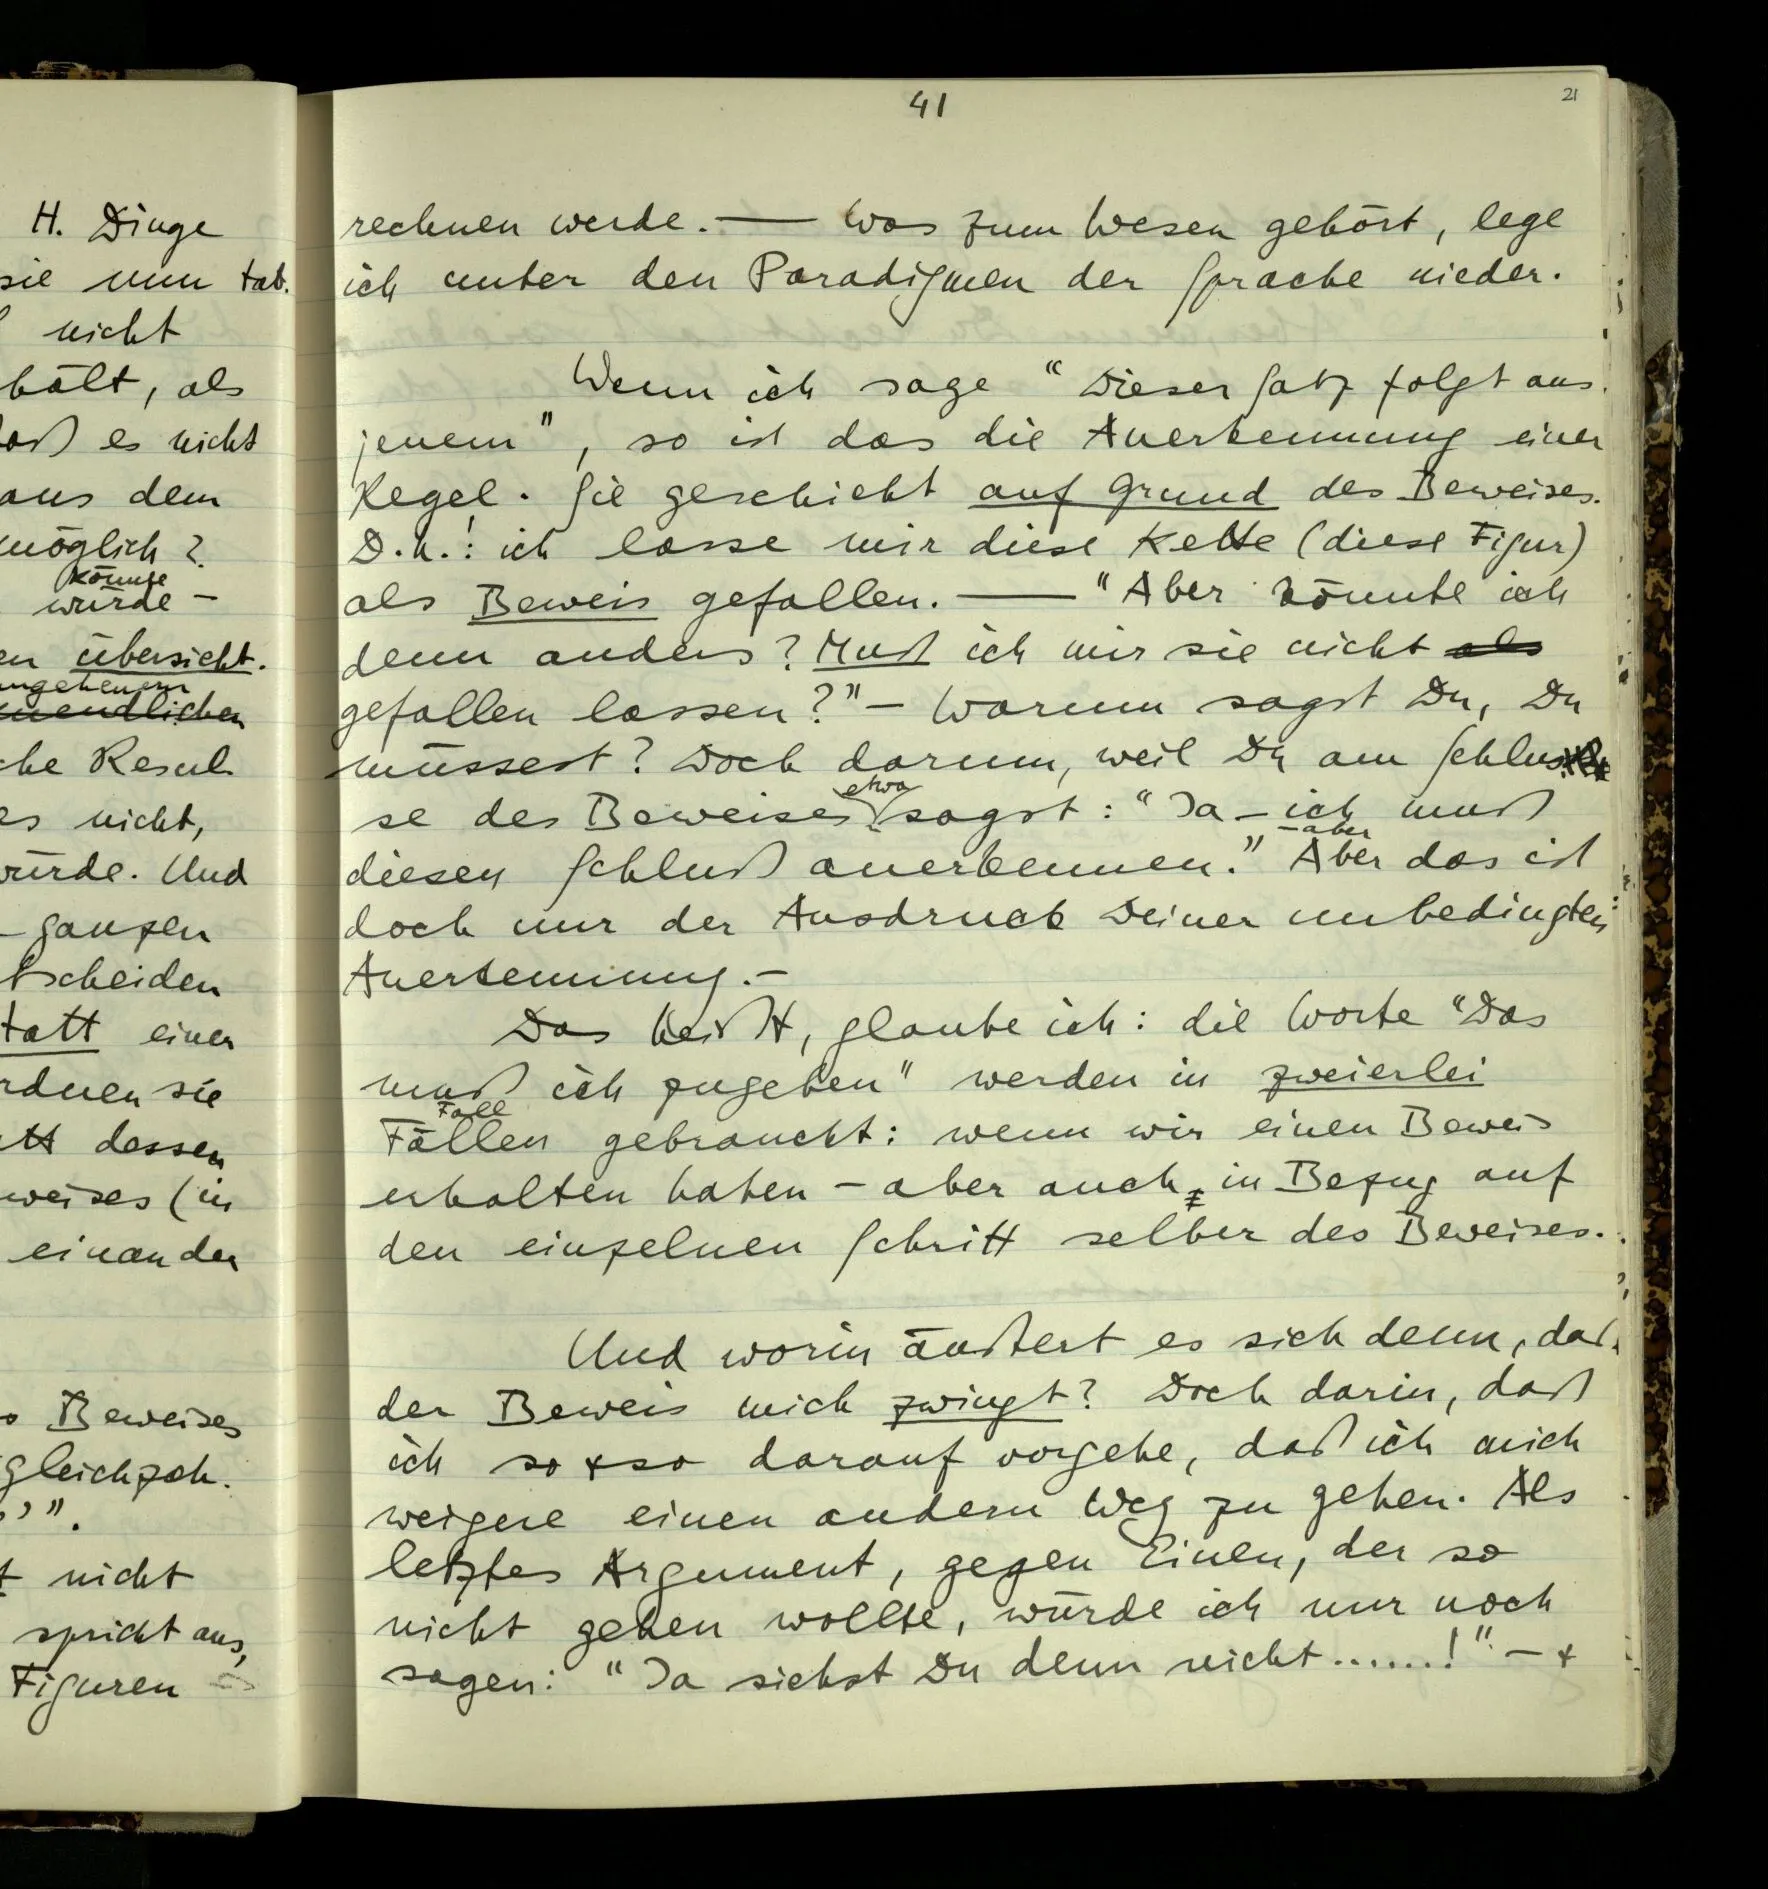 H. Dinge
sie nun tab.
nicht
hält, als
daß es nicht
aus dem
möglich?
könnte
würde –
en übersicht.
ungeheuren
unendlichen
che Resul-
es nicht,
würde. Und
– ganzen
tscheiden
tatt einer
rdnen sie
tt dessen
weises (in
einander
Beweises
gleichzah.
’”.
nicht
spricht aus,
Figuren
41
21
rechnen werde. — Was zum Wesen gehört, lege
ich unter den Paradigmen der Sprache nieder.
Wenn ich sage “Dieser Satz folgt aus
jenem”, so ist das die Anerkennung einer
Regel. Sie geschieht auf Grund des Beweises.
D.h.: ich lasse mir diese Kette (diese Figur)
als Beweis gefallen. — “Aber könnte ich
denn anders? Muß ich mir sie nicht als
gefallen lassen?” – Warum sagst Du, Du
müssest? Doch darum, weil Du am Schlus
etwa
se des Beweises sagst: “Ja – ich muß
– aber
diesen Schluß anerkennen.” Aber das ist
doch nur der Ausdruck Deiner unbedingten
Anerkennung. –
Das heißt, glaube ich: die Worte “Das
muß ich zugeben” werden in zweierlei
Fall
Fällen gebraucht: wenn wir einen Beweis
erhalten haben – aber auch in Bezug auf
den einzelnen Schritt selber des Beweises.
Und worin äußert es sich denn, daß
der Beweis mich zwingt? Doch darin, daß
ich so + so darauf vorgehe, daß ich mich
weigere einen andern Weg zu gehen. Als
letztes Argument, gegen Einen, der so
nicht gehen wollte, würde ich nur noch
sagen: “Ja siehst Du denn nicht.......!” – +